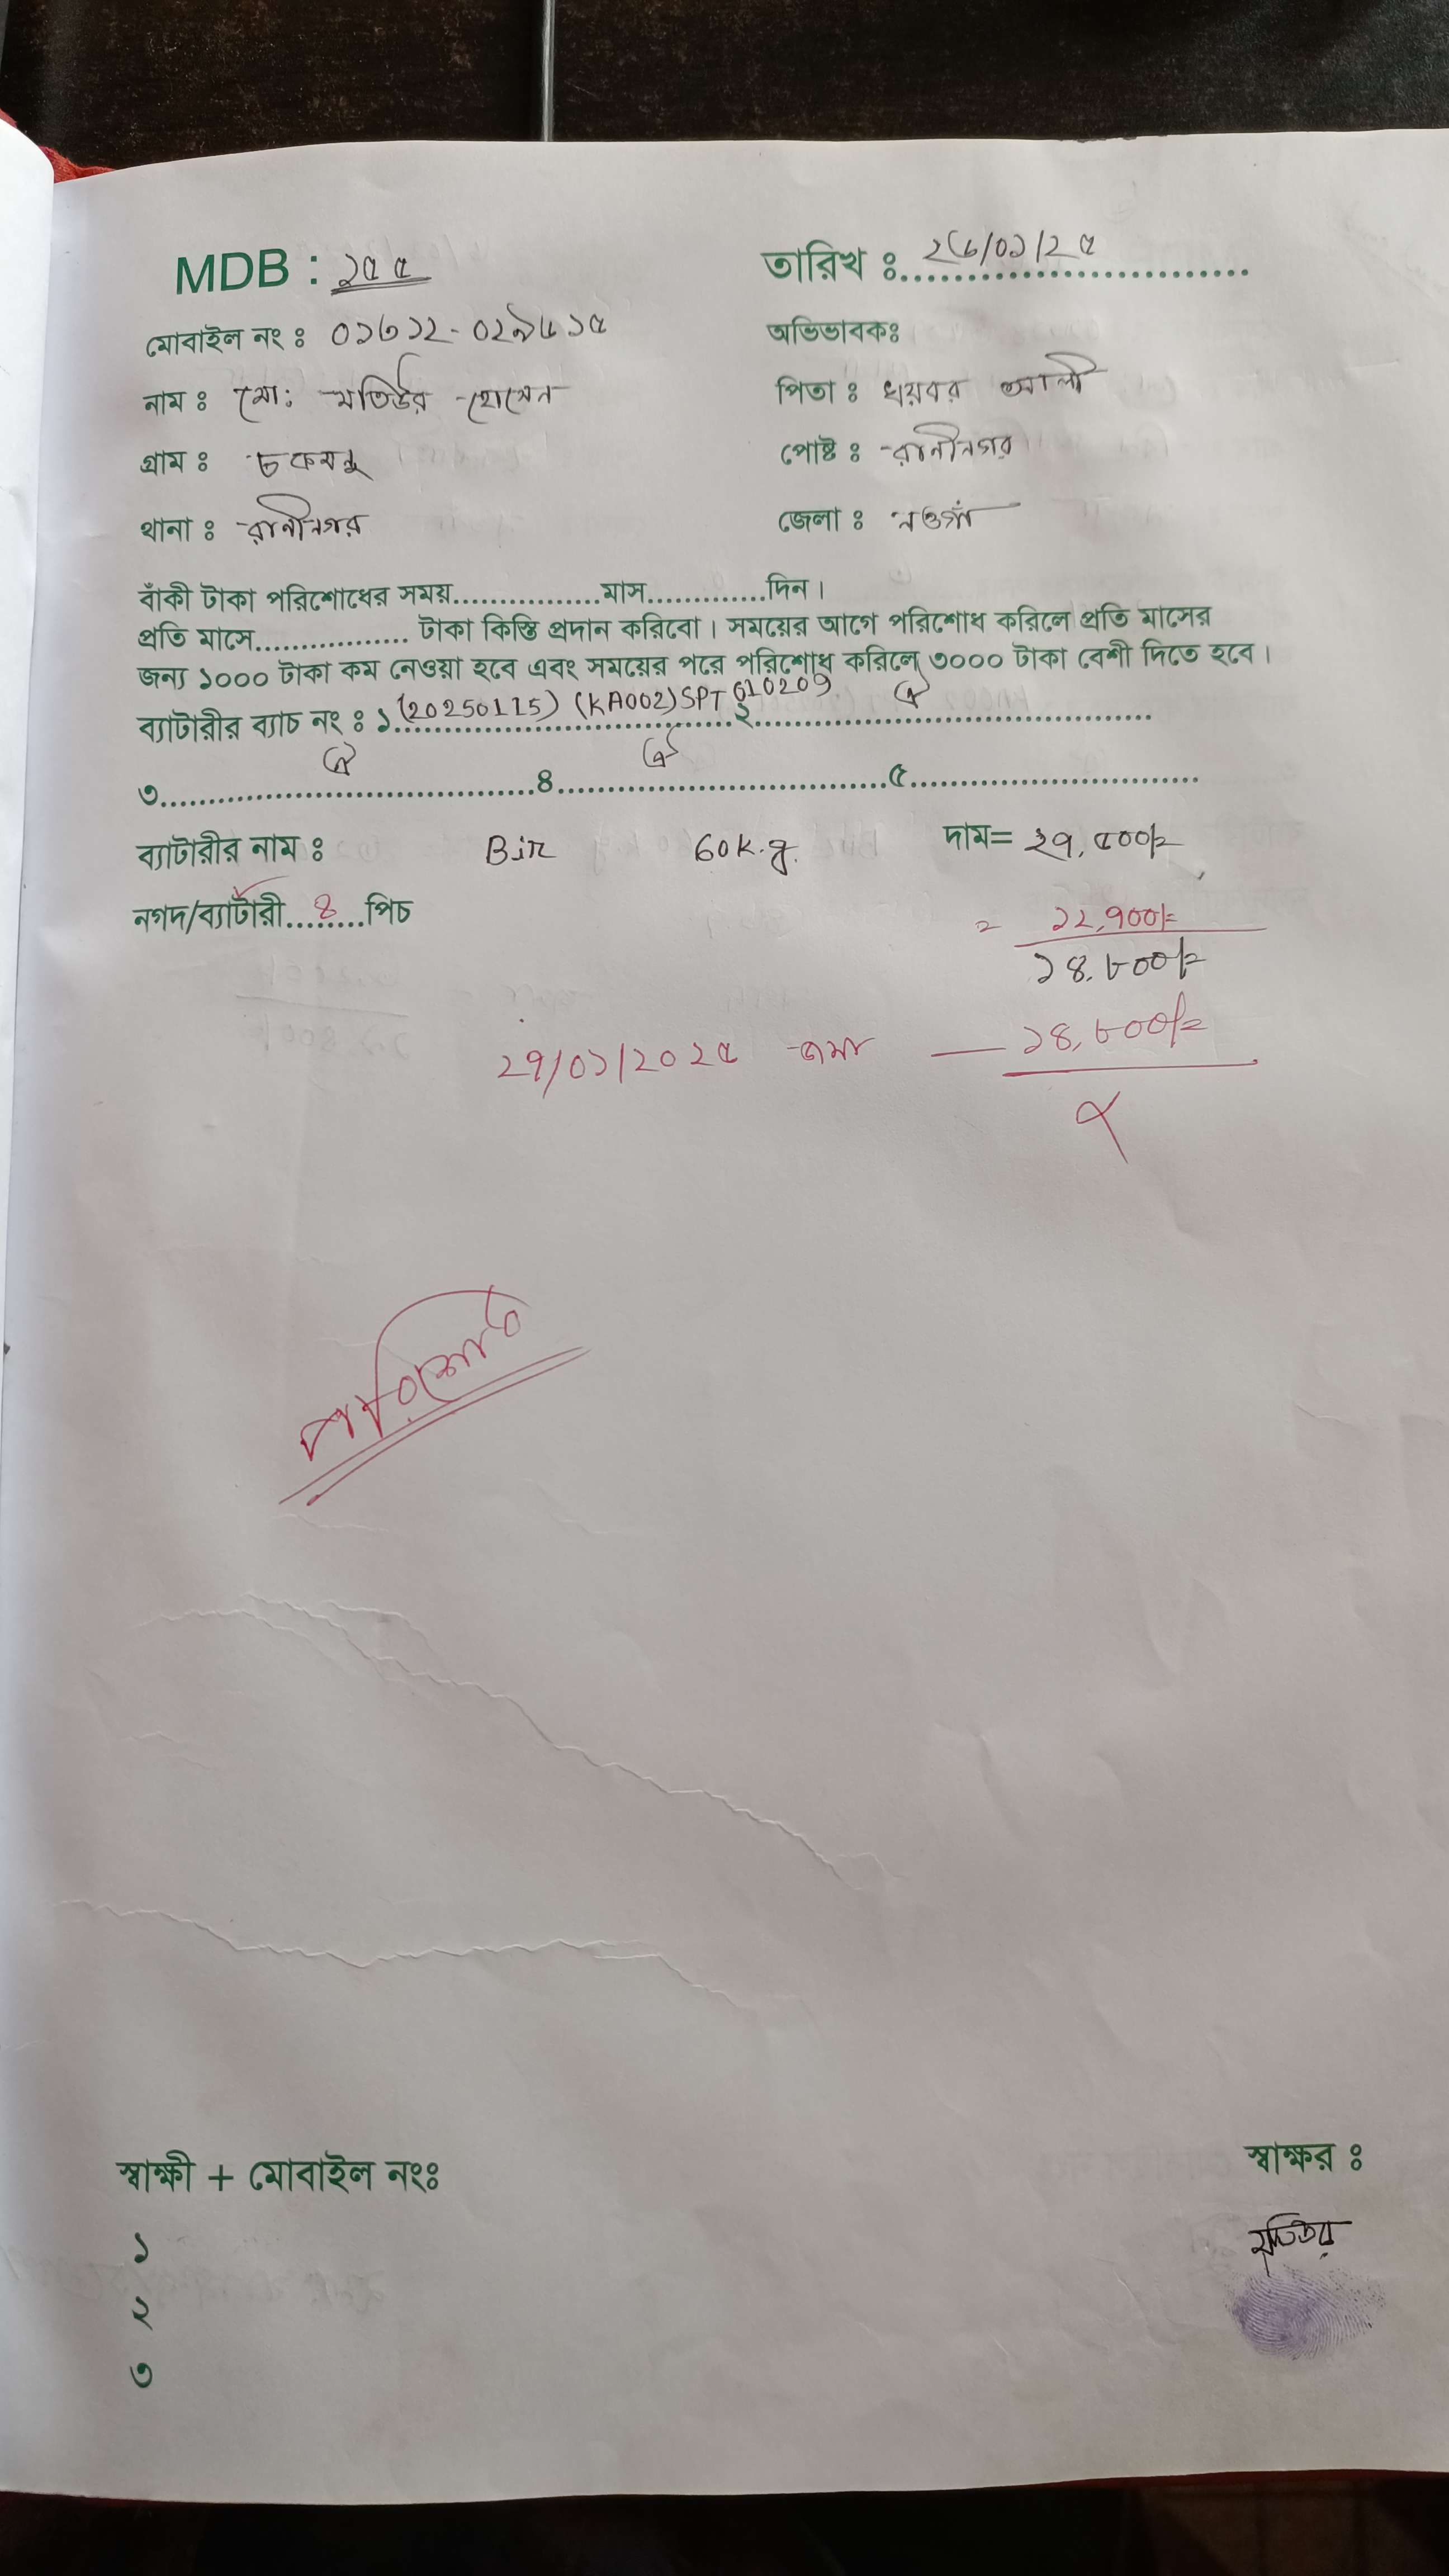 MDB : ১৫৫
তারিখ ঃ ২৬/০১/২৫
মোবাইল নং ঃ ০১৬১২-০২৯৬১৫
অভিভাবকঃ
নাম ঃ মো: মতিউর হোসেন
পিতা ঃ খয়বর আলী
গ্রাম ঃ চকমনু
পোষ্ট ঃ রানীনগর
থানা ঃ রানীনগর
জেলা ঃ নওগাঁ
বাঁকী টাকা পরিশোধের সময়................মাস.............দিন।
প্রতি মাসে................. টাকা কিস্তি প্রদান করিবো। সময়ের আগে পরিশোধ করিলে প্রতি মাসের
জন্য ১০০০ টাকা কম নেওয়া হবে এবং সময়ের পরে পরিশোধ করিলে ৩০০০ টাকা বেশী দিতে হবে।
ব্যাটারীর ব্যাচ নং ঃ ১ (20250115) (KA002) SPT 010209 ২
৩ ৪ ৫
ব্যাটারীর নাম ঃ Bir 60 k.g. দাম= ২৭,৫০০/=
নগদ/ব্যাটারী...৪...পিচ
= ১২,৭০০/=
১৪,৮০০/=
২৭/০১/২০২৫ জমা — ১৪,৮০০/=
পরিশোধ
স্বাক্ষী + মোবাইল নংঃ
স্বাক্ষর ঃ
মতিউর
১
২
৩